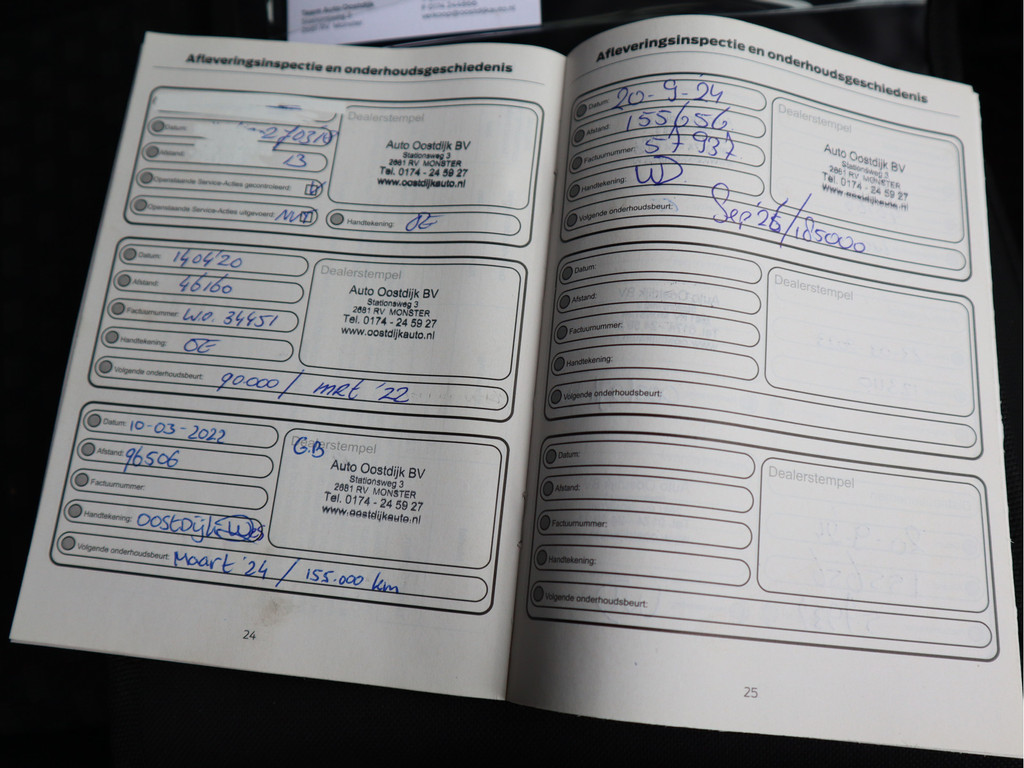 Team Auto Oostdijk
Stationsweg 3
2681 RV Monster
verkoop@oostdijkauto.nl
Afleveringsinspectie en onderhoudsgeschiedenis
Datum: 270318
Afstand: 13
Openstaande Service-Acties gecontroleerd:
Openstaande Service-Acties uitgevoerd: NVT
Dealerstempel
Auto Oostdijk BV
Stationsweg 3
2681 RV MONSTER
Tel. 0174 - 24 59 27
www.oostdijkauto.nl
Handtekening: OE
Datum: 140420
Afstand: 46160
Factuurnummer: W.O. 34451
Handtekening: OE
Volgende onderhoudsbeurt: 90000 / mrt '22
Dealerstempel
Auto Oostdijk BV
Stationsweg 3
2681 RV MONSTER
Tel. 0174 - 24 59 27
www.oostdijkauto.nl
Datum: 10-03-2022
Afstand: 96506
Factuurnummer:
Handtekening: Oostdijk
Volgende onderhoudsbeurt: Maart '24 / 155.000 km
G.B
Dealerstempel
Auto Oostdijk BV
Stationsweg 3
2681 RV MONSTER
Tel. 0174 - 24 59 27
www.oostdijkauto.nl
24
Afleveringsinspectie en onderhoudsgeschiedenis
Datum: 20-9-'24
Afstand: 155656
Factuurnummer: 57937
Handtekening: WD
Volgende onderhoudsbeurt: Sep '26 / 185000
Dealerstempel
Auto Oostdijk BV
Stationsweg 3
2681 RV MONSTER
Tel. 0174 - 24 59 27
www.oostdijkauto.nl
Datum:
Afstand:
Factuurnummer:
Handtekening:
Volgende onderhoudsbeurt:
Dealerstempel
Datum:
Afstand:
Factuurnummer:
Handtekening:
Volgende onderhoudsbeurt:
Dealerstempel
25